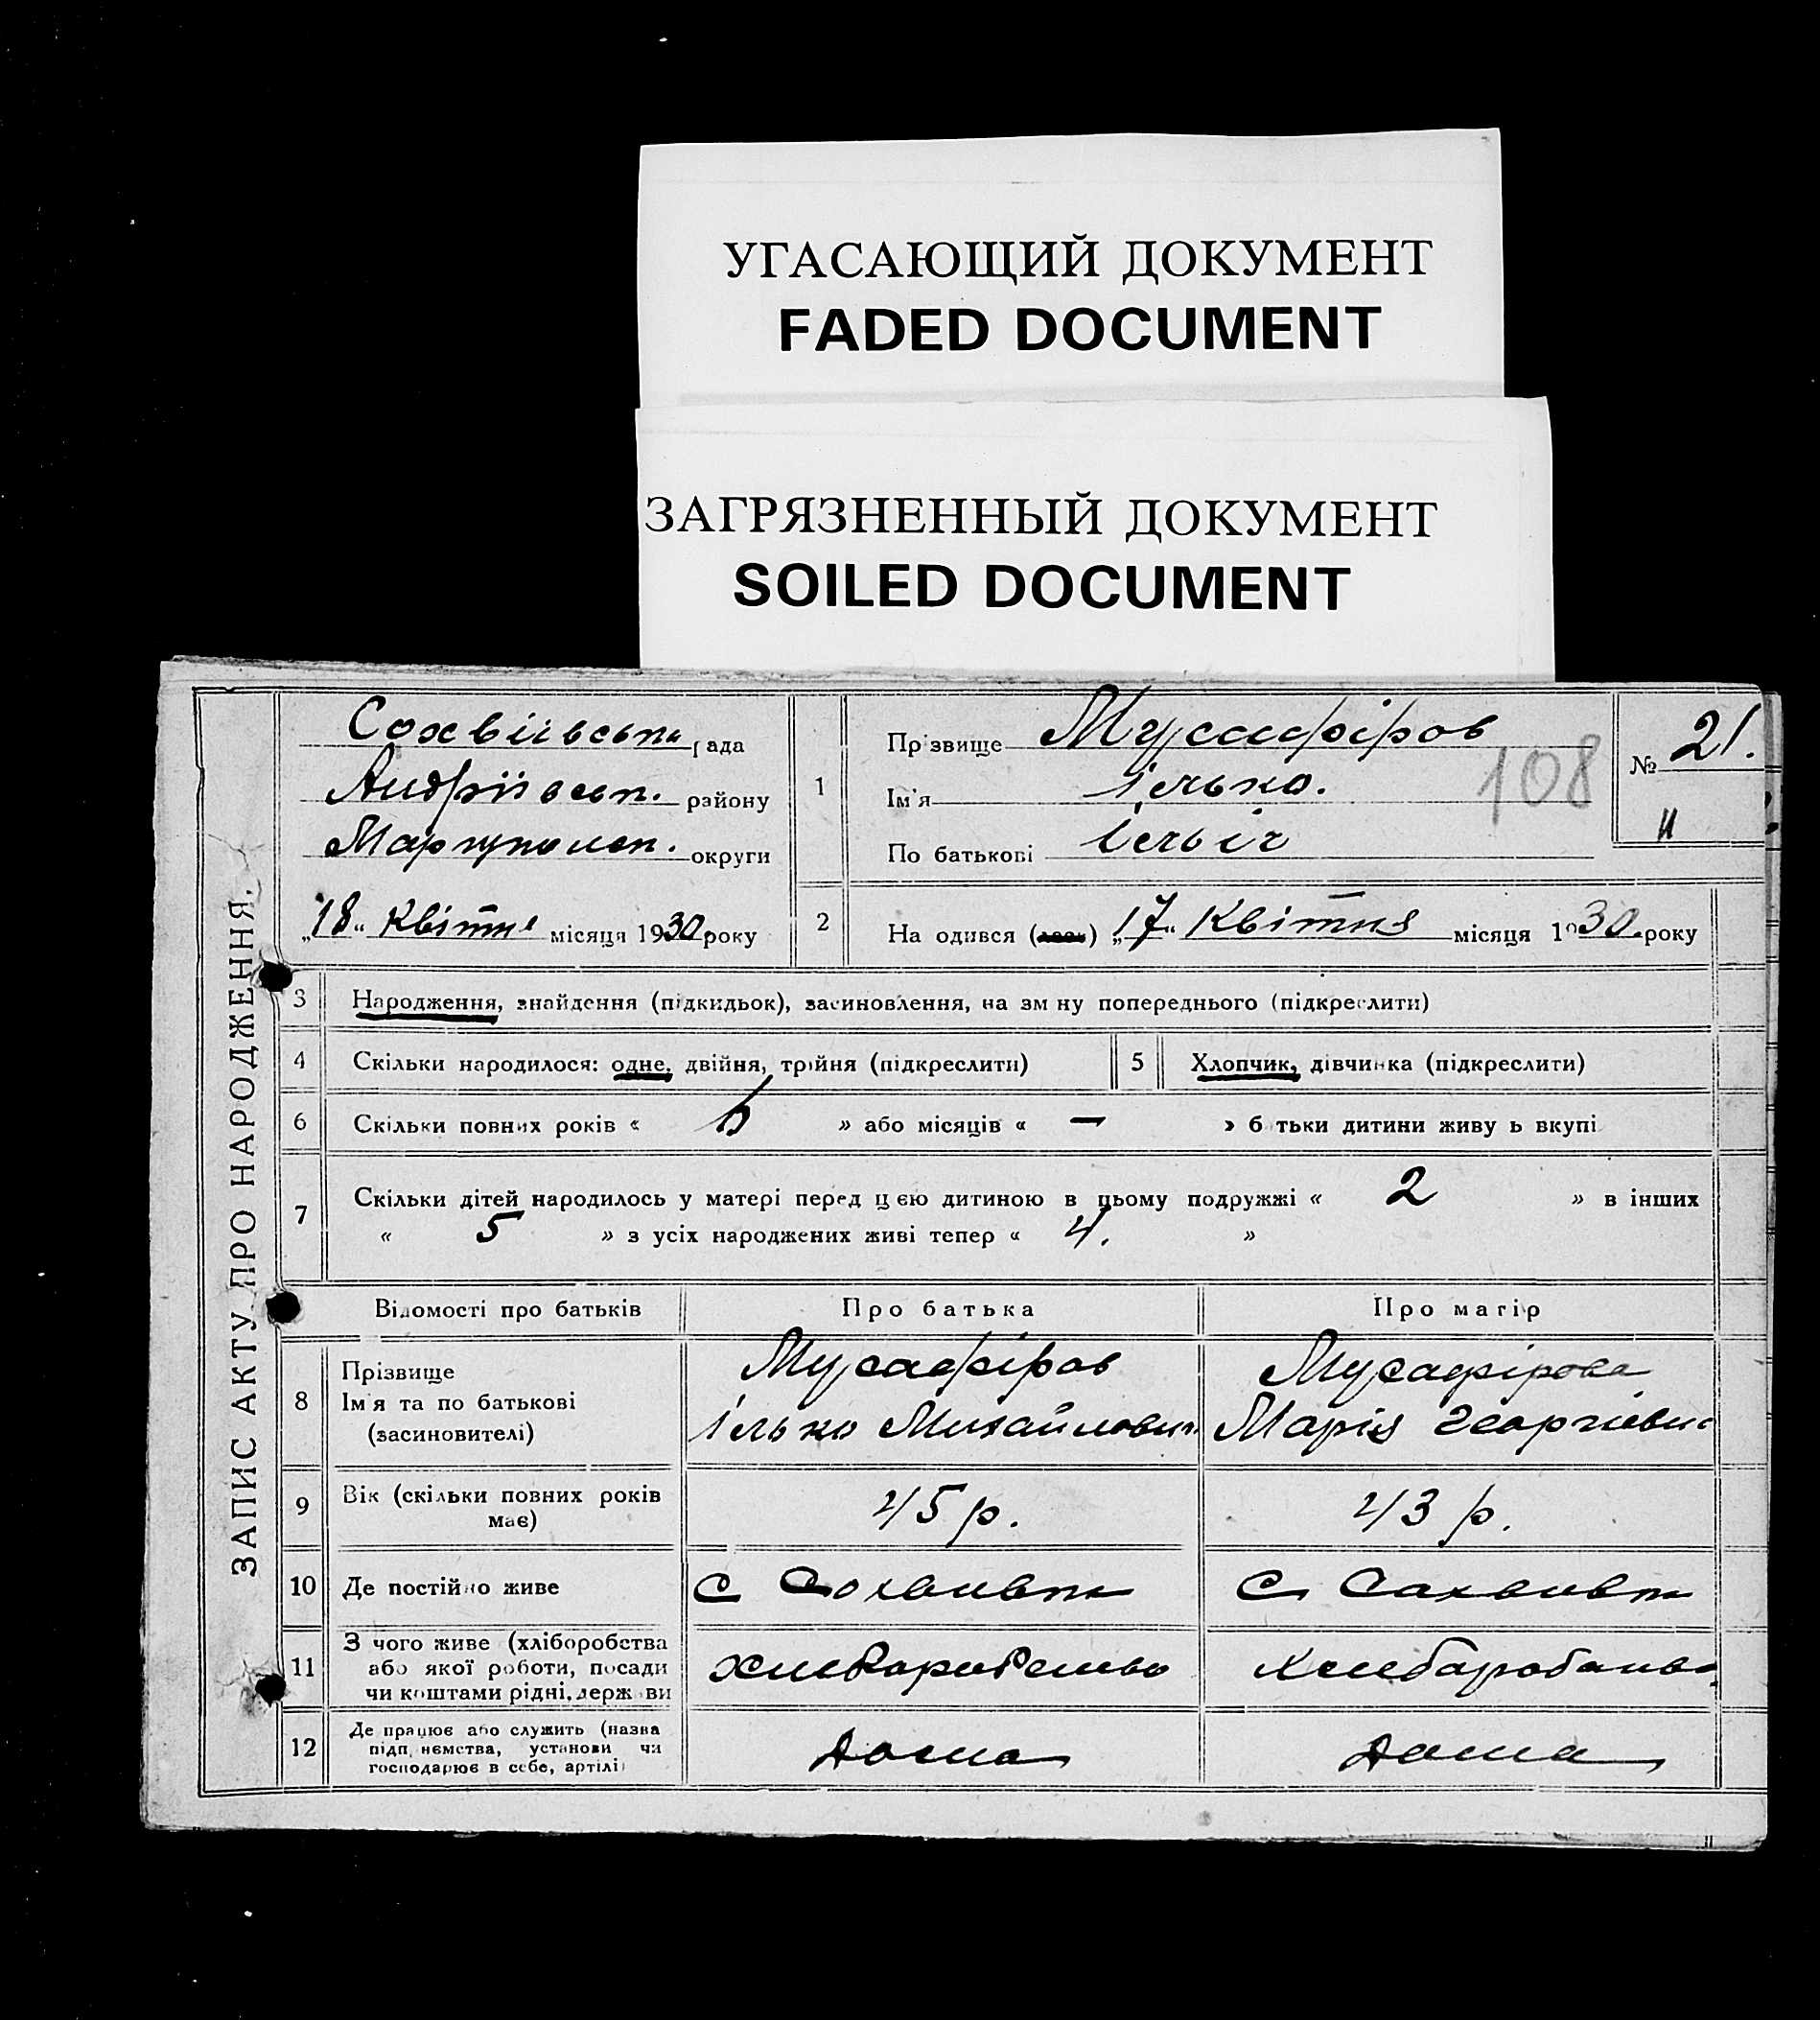 УГАСАЮЩИЙ ДОКУМЕНТ
FADED DOCUMENT
ЗАГРЯЗНЕННЫЙ ДОКУМЕНТ
SOILED DOCUMENT
ЗАПИС АКТУ ПРО НАРОДЖЕННЯ.
Сохвіївська рада
Андріївськ. району
Маріупольск. округи
„18“ Квітня місяця 1930 року
1
Прізвище Мусафіров
Ім'я Ілько.
По батькові Ілліч
108
№ 21.
2
На одився „17“ Квітня місяця 1930. року
3 Народження, знайдення (підкидьок), засиновлення, на зм ну попереднього (підкреслити)
4 Скільки народилося: одне, двійня, трійня (підкреслити)
5 Хлопчик, дівчинка (підкреслити)
6 Скільки повних років « » або місяців « — » б тьки дитини живу ь вкупі
7 Скільки дітей народилось у матері перед цією дитиною в цьому подружжі « 2 » в інших
« 5 » з усіх народжених живі тепер « 4. »
Відомості про батьків Про батька Про матір
8 Прізвище
Ім'я та по батькові
(засиновителі)
Мусафіров
Ілько Михайлович
Мусафірова
Марія Георгіевн
9 Вік (скільки повних років
має)
45 р.
43 р.
10 Де постійно живе
с Сохвиевка
с Сахвиевка
11 З чого живе (хліборобства
або якої роботи, посади
чи коштами рідні, держ ви
хлеборобство
хлеборобство
12 Де працює або служить (назва
підп немства, установи чи
господарює в себе, артілі)
дома
дома